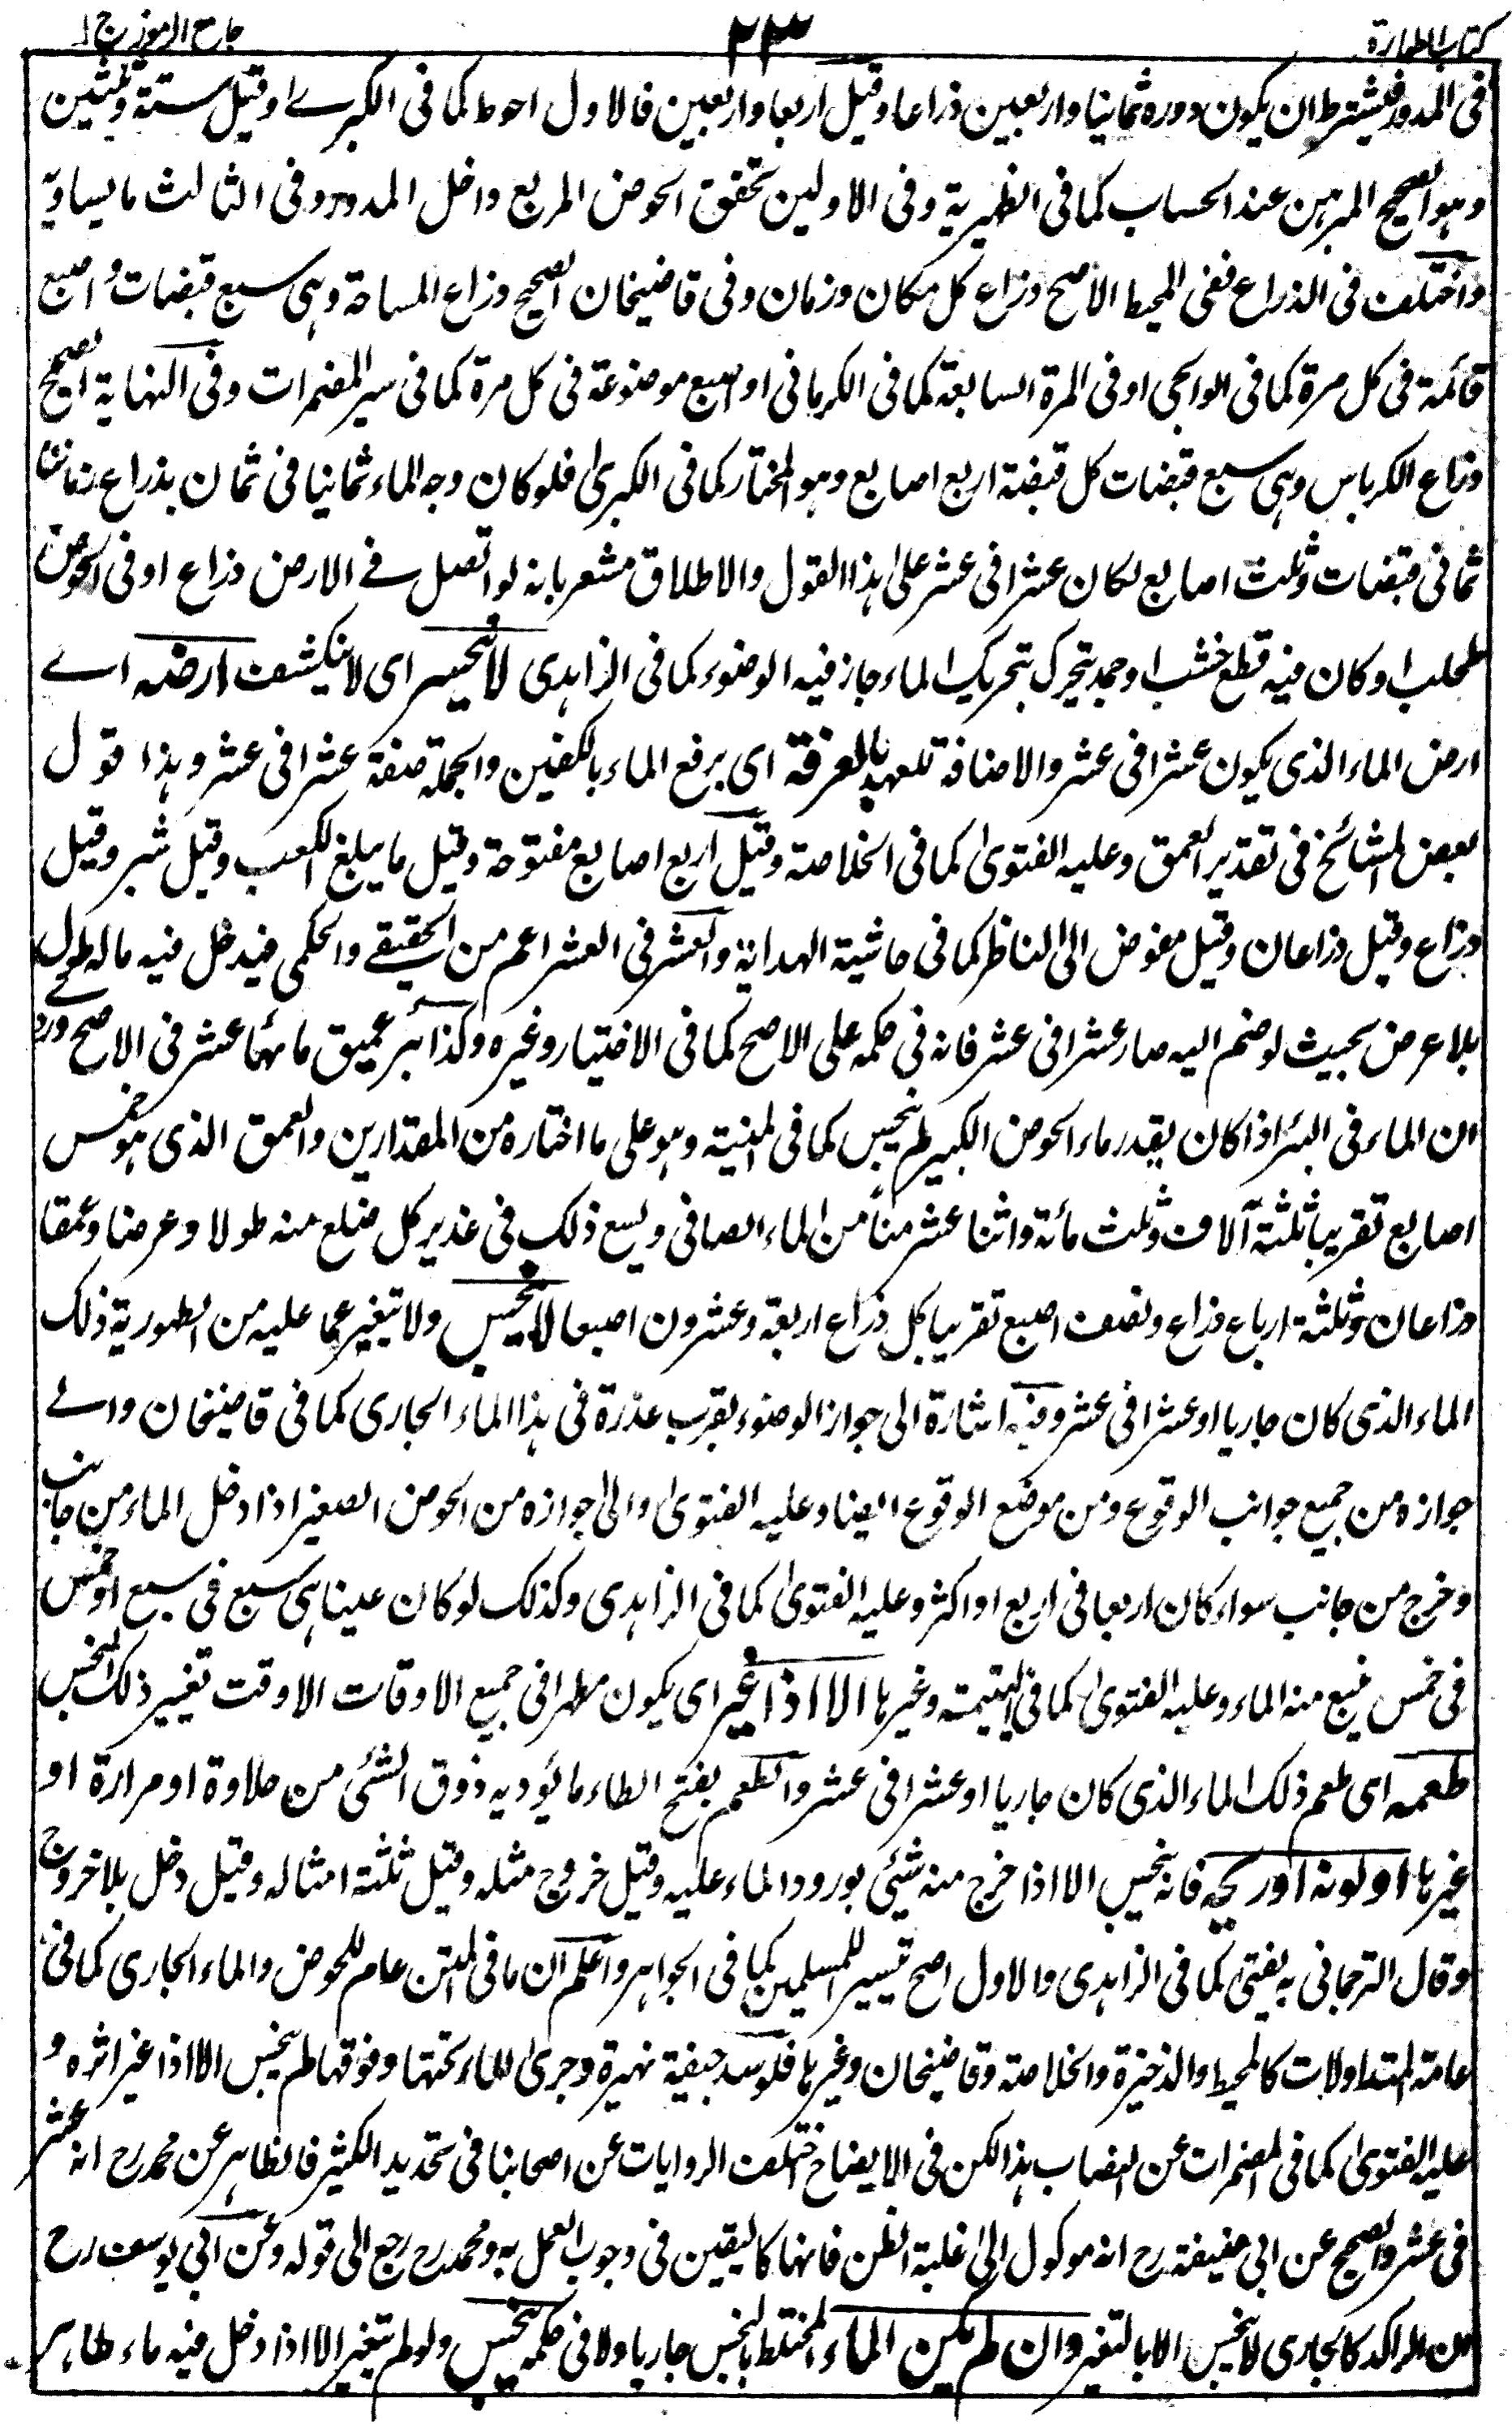 كتاب الطهارة
٢٣
جامع الرموز ج ١
فى المدور فيشترط ان يكون دوره ثمانيا واربعين ذراعا وقيل اربعا واربعين فالاول احوط كما فى الكبرے او قيل ستة وثلثين
وهو الصحيح المبرهن عند الحساب كما فى الظهيرية وفى الاولين تحقق الحوض المربع داخل المدور وفى الثالث ما يساويه
واختلف فى الذراع ففى المحيط الاصح ذراع كل مكان وزمان وفى قاضيخان الصحيح ذراع المساحة وهى سبع قبضات واصبع
قائمة فى كل مرة كما فى الوالجى او فى المرة السابعة كما فى الكرمانى او اصبع موضوعة فى كل مرة كما فى سير المضمرات وفى النهاية الصحيح
ذراع الكرباس وهى سبع قبضات كل قبضة اربع اصابع وهو المختار كما فى الكبرىٰ فلو كان وجه الماء ثمانيا فى ثمان بذراع زماننا
ثمانى قبضات وثلث اصابع لكان عشرا فى عشر علىٰ هذا القول والاطلاق مشعر بانه لو اتصل فے الارض ذراع او فى الحوض
طحلب او كان فيه قطع خشب او جمد يتحرك بتحريك الماء جاز فيه الوضوء كما فى الزاهدى لا ينحسر اى لا ينكشف ارضه اے
ارض الماء الذى يكون عشرا فى عشر والاضافة للعهد بالغرفة اى برفع الماء بالكفين والجملة صفة عشرا فى عشر وهذا قول
بعض المشائخ فى تقدير العمق وعليه الفتوىٰ كما فى الخلاصة وقيل اربع اصابع مفتوحة وقيل ما يبلغ الكعب وقيل شبر وقيل
ذراع وقيل ذراعان وقيل مفوض الى الناظر كما فى حاشية الهداية والعشر فى العشر اعم من الحقيقے والحكمى فيدخل فيه ما له طول
بلا عرض بحيث لو ضم اليه صار عشرا فى عشر فانه فى حكمه على الاصح كما فى الاختيار وغيره وكذا بئر عميق ماؤها عشر فى الاصح
ان الماء فى البئر اذا كان بقدر ماء الحوض الكبير لم ينجس كما فى المنية وهو على ما اختاره من المقدارين والعمق الذى هو خمس
اصابع تقريبا ثلثة آلاف وثلث مائة واثنا عشر منا من الماء الصافى ويسع ذلك فى غدير كل ضلع منه طولا وعرضا وعمقا
ذراعان وثلثة ارباع ذراع ونصف اصبع تقريبا كل ذراع اربعة وعشرون اصبعا لا ينجس ولا يتغير عما عليه من الطهورية ذلك
الماء الذى كان جاريا او عشرا فى عشر وفيه اشارة الى جواز الوضوء بقرب عذرة فى هذا الماء الجارى كما فى قاضيخان والے
جوازه من جميع جوانب الوقوع ومن موضع الوقوع ايضا وعليه الفتوىٰ والى جوازه من الحوض الصغير اذا دخل الماء من جانب
وخرج من جانب سواء كان اربعا فى اربع او اكثر وعليه الفتوىٰ كما فى الزاهدى وكذلك لو كان عينا هى سبع فى سبع او خمس
فى خمس ينبع منه الماء وعليه الفتوىٰ كما فى اليتيمة وغيرها الا اذا غير اى يكون مطهرا فى جميع الاوقات الا وقت تغيير ذلك النجس
طعمه اى طعم ذلك الماء الذى كان جاريا او عشرا فى عشر والطعم بفتح الطاء ما يؤديه ذوق الشئ من حلاوة او مرارة او
غيرها او لونه او ريحه فانه ينجس الا اذا خرج منه شئ بورود الماء عليه وقيل خروج مثله وقيل ثلثة امثاله وقيل دخل بلا خروج
وقال الترجمانى به يفتى كما فى الزاهدى والاول اصح تيسيرا للمسلمين كما فى الجواهر واعلم ان ما فى المتن عام للحوض والماء الجارى كما فى
عامة المتداولات كالمحيط والذخيرة والخلاصة وقاضيخان وغيرها فلو سد جيفة نهيرة وجرىٰ الماء تحتها وفوقها لم ينجس الا اذا غير اثره و
عليه الفتوىٰ كما فى المضمرات عن النصاب هذا لكن فى الايضاح اختلفت الروايات عن اصحابنا فى تحديد الكثير فالظاهر عن محمد رح انه عشر
فى عشر والصحيح عن ابى حنيفة رح انه موكول الىٰ غلبة الظن فانها كاليقين فى وجوب العمل به ومحمد رح رجع الى قوله وعن ابى يوسف رح
ان الراكد كالجارى لا ينجس الا بالتغير وان لم يكن الماء المختلط بالنجس جاريا ولا فى حكمه ينجس ولو لم يتغير الا اذا دخل فيه ماء طاهر